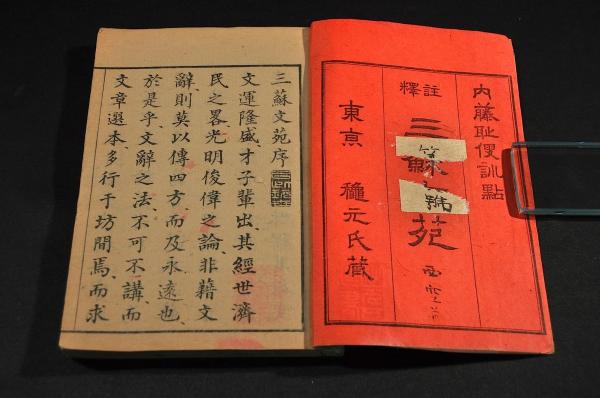 内藤耻叟訓點
註釋
三
苑
東亰 龝元氏藏
三蘇文苑序
文運隆盛、才子輩出、其經世濟
民之畧、光明俊偉之論、非籍文
辭、則莫以傳四方、而及永遠也、
於是乎、文辭之法、不可不講、而
文章選本、多行于坊間焉、而求